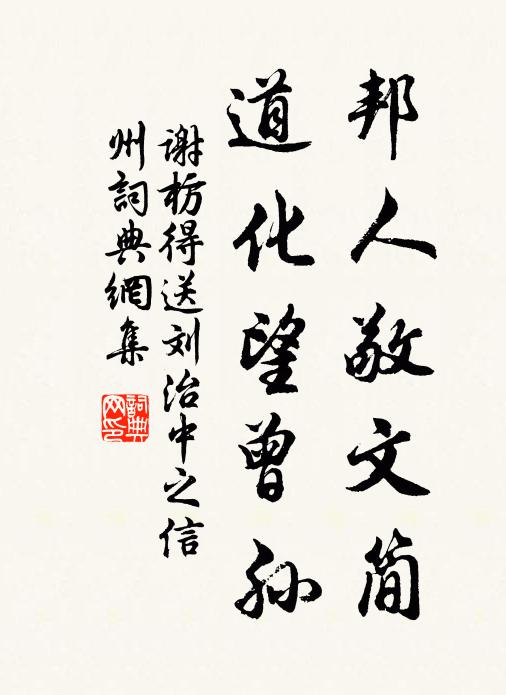 邦人敬文简
道化望曾孙
谢枋得送刘治中之信
州詞典網集
詞典网印